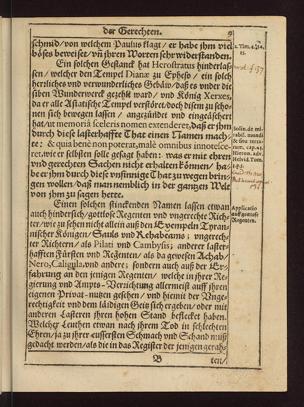 der Gerechten. 9
schmid/ von welchem Paulus klagt/ er habe jhm viel
böses beweiset/ vñ jhren Worten sehr widerstanden.
Ein solchen Gestanck hat Herostratus hinderlas-
sen/ welcher den Tempel Dianæ zu Epheso/ ein solch
herrliches und verwunderliches Gebäw/ daß es under die
siben Wunderwerck gezehlt ward/ und König Xerxes,
da er alle Asiatische Tempel verstöret/ doch disem zu scho-
nen sich bewegen lassen/ angezündet und eingeäschert
hat/ ut memoriâ sceleris nomen extenderet, daß er jhm
durch dise lasterhaffte That einen Namen mach-
te: & quia benè non poterat, malè omnibus innotesce-
ret, wie er selbsten solle gesagt haben: was er mit ehren
und gerechten Sachen nicht erhalten können/ ha-
be er jhm durch dise unsinnige That zu wegen brin-
gen wollen/ daß man nemblich in der gantzen Welt
von jhm zu sagen hette.
Einen solchen stinckenden Namen lassen etwan
auch hindersich/ gottlose Regenten und ungerechte Rich-
ter/ wie zu sehen nicht allein auß den Exempeln Tyran-
nischer Königen/ Sauls und Rehabeams: ungerech-
ter Richtern/ als Pilati und Cambysis; anderer laster-
hafften Fürsten und Regenten/ als da gewesen Achab,
Nero, Caligula, und andere: sondern auch auß der Er-
fahrung an den jenigen Regenten/ welche in jhrer Re-
gierung und Ampts-Verrichtung allermeist auff jhren
eigenen Privat-nutzen gesehen/ und hiemit der Unge-
rechtigkeit und dem läidigen Geitz sich ergeben/ oder mit
anderen Lasteren jhren hohen Stand beflecket haben.
Welcher Leuthen etwan nach jhrem Tod in schlechten
Ehren/ ja zu jhrer eussersten Schmach und Schand muß
gedacht werden/ als die in das Register der jenigen gerah-
B
ten/
2. Tim. 4. 14.
15.
Solin. de mi-
rabil. mundi
Hieron. adv.
Helvid. Tom.
Applicatio
auff gottlose
Regenten.